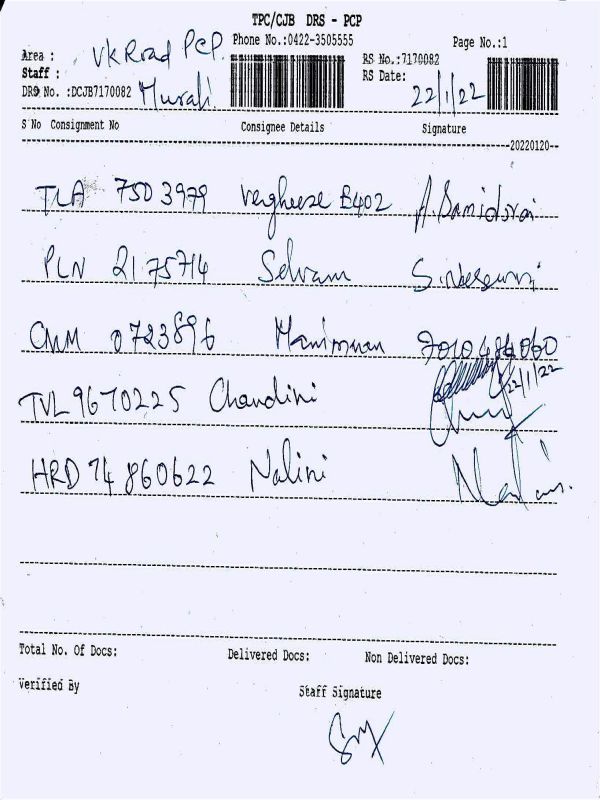 TPC/CJB DRS - PCP
Area : VK Road PCP. Phone No.:0422-3505555 Page No.:1
Staff : RS No.:7170082
DRS No. :DCJB7170082 Murali RS Date: 22/1/22
S No Consignment No Consignee Details Signature
20220120
TLA 7503979 Vergheese B402 A.Samidurai
PLN 2175714 Selvam
CNM 0723896 Manimaran 7010484060
22/1/22
TVL 9670225 Chandini
HRD 74860622 Nalini Nalini
Total No. Of Docs: Delivered Docs: Non Delivered Docs:
Verified By Staff Signature